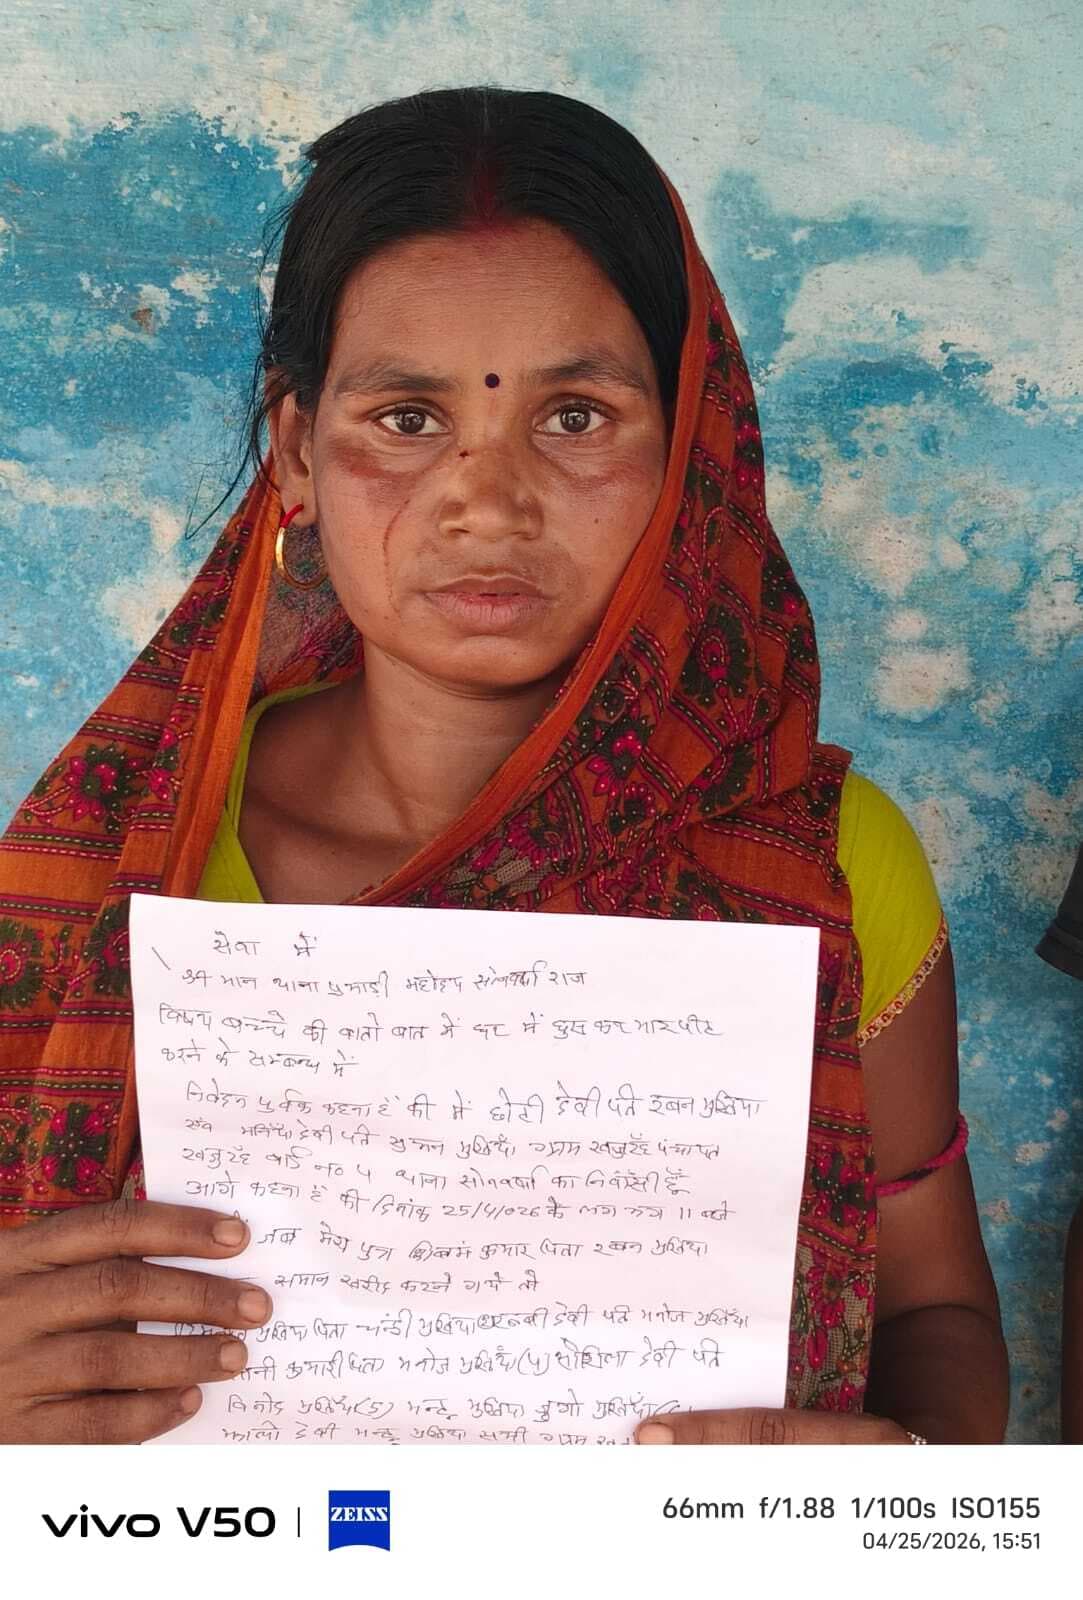 सेवा में
श्री मान थाना प्रभारी महोदय सोनवर्षा राज
विषय बच्चे की बातो बात में घर में घुस कर मारपीट
करने के सम्बन्ध में
निवेदन पुर्वक कहना है की में छोटी देवी पति रबन मुखिया
एवं देवी पति सुमन मुखिया ग्राम खजुरहा पंचायत
खजुरहा वार्ड न० ५ थाना सोनवर्षा का निवासी हूँ
आगे कहना है की दिनांक 25/4/026 के लग भग 11 बजे
जब मेरा पुत्र कुमार पिता रबन मुखिया
समान खरीद करने गये तो
मुखिया पिता मुखिया देवी पति मनोज मुखिया
कुमारी पिता मनोज मुखिया (4) देवी पति
विनोद मुखिया (5) मुखिया मुखिया
देवी मुखिया सभी ग्राम
vivo V50 | ZEISS
66mm f/1.88 1/100s ISO155
04/25/2026, 15:51